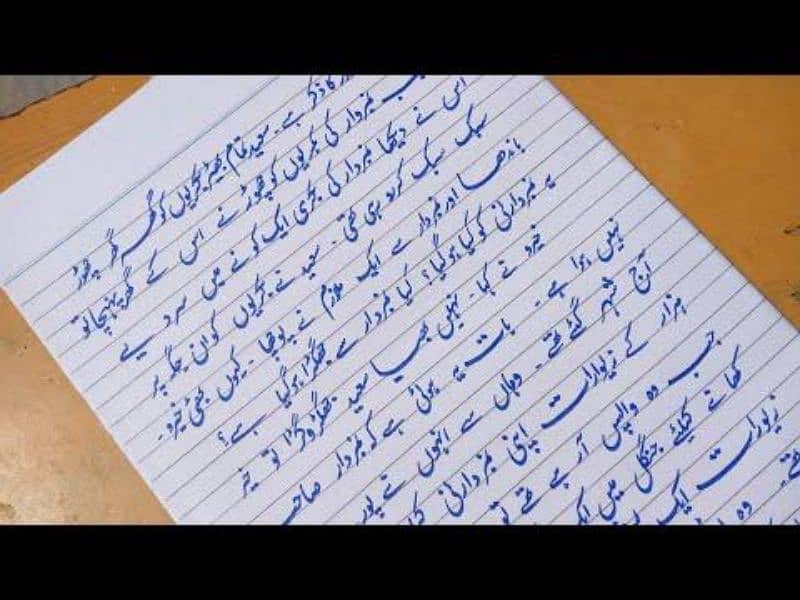 کا ذکر ہے۔ سعید تمام بھیڑ بکریوں کو گھر گھر چھوڑ
نمبردار کی بکریوں کو چھوڑنے اس کے گھر پہنچا تو
اس نے دیکھا نمبردار کی بکری ایک کونے میں سر دیے
سبک سبک کر رو رہی تھی۔ سعید نے بکریوں کو ان جگہ پر
باندھا اور نمبردار سے ایک ملازم نے پوچھا۔ کیوں بھئی خیرو۔
یہ نمبردارنی کو کیا ہوگیا؟ کیا نمبردار سے جھگڑا ہوگیا ہے؟
خیرو نے کہا۔ نہیں بھیا سعید جھگڑا وگڑا تو خیر
نہیں ہوا ہے۔ بات یہ ہوئی ہے کہ نمبردار صاحب
آج شہر گئے تھے۔ وہاں سے انہوں نے
ہزار کے زیورات اپنی نمبردارنی
جب وہ واپس آ رہے تھے تو
کھانے کیلئے جنگل میں
زیورات ایک
تھے۔ وہ